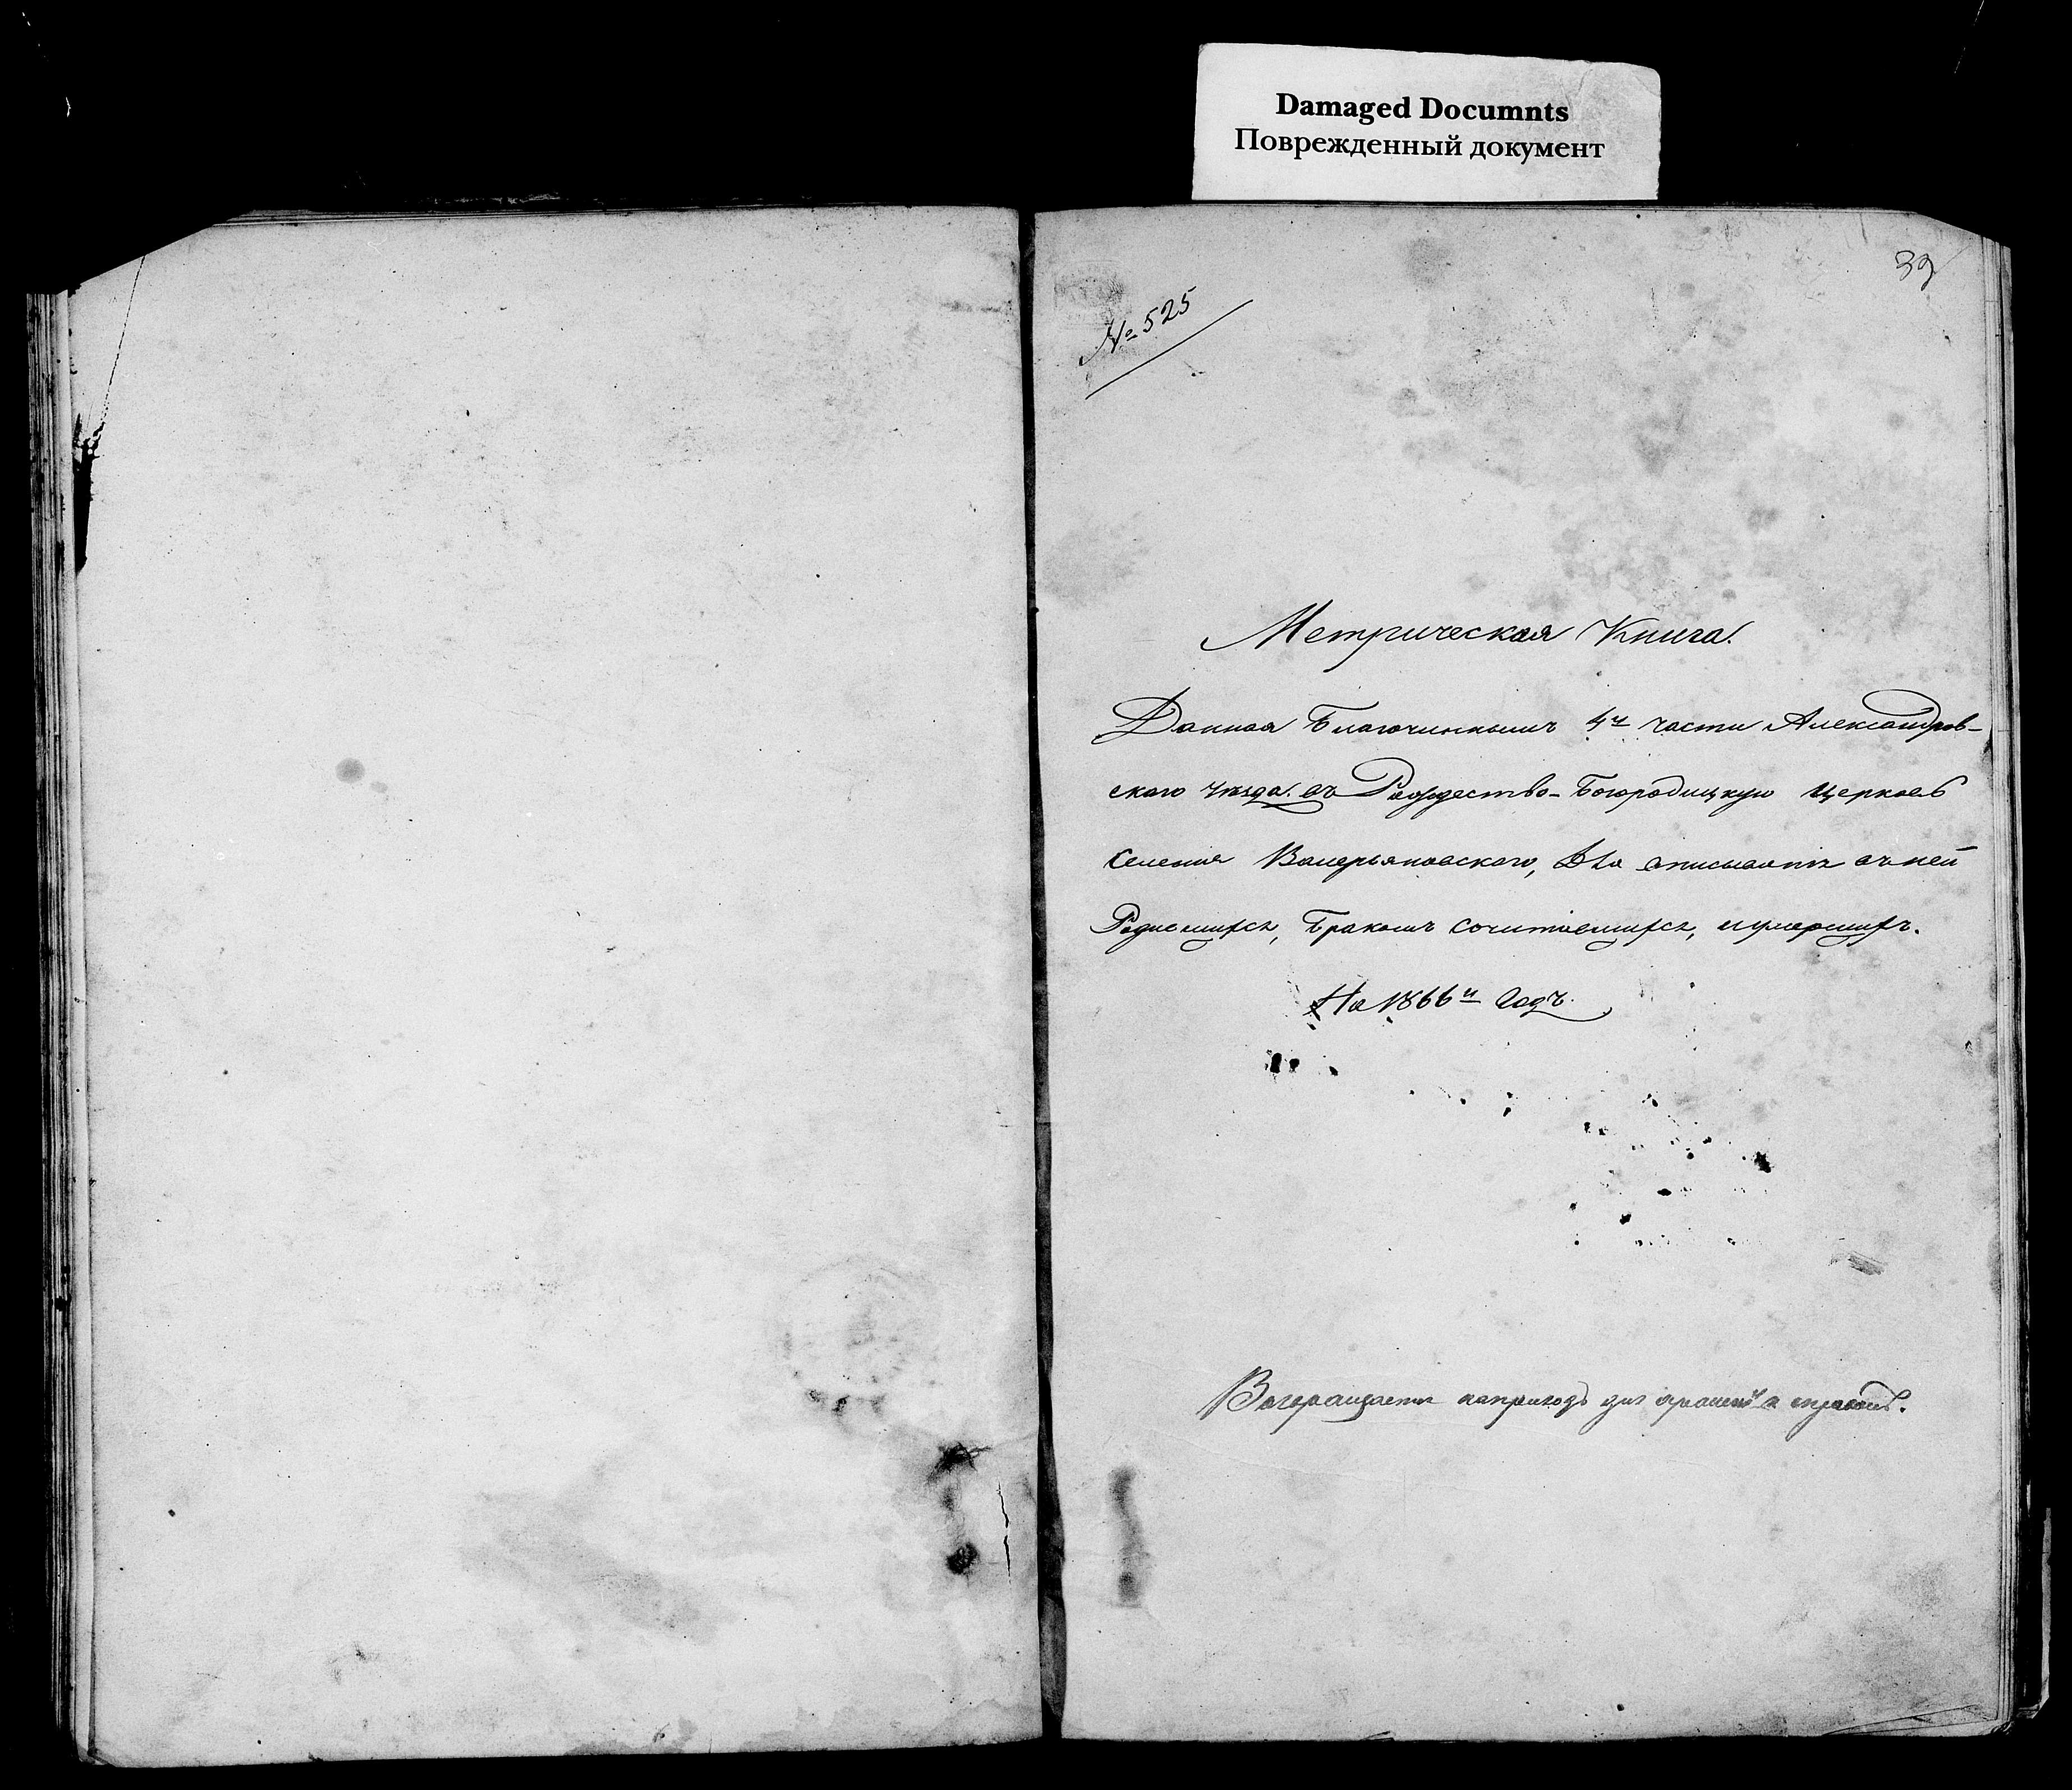 Damaged Documnts
Поврежденный документ
39
№ 525
Метрическая Книга.
Данная Благочиннымъ 4й части Александров-
скаго уѣзда. въ Рождество-Богородицкую Церковь
селенія Валерьяновскаго, для вписыванія въ ней
Родившихся, Бракомъ сочитавшихся, и умершихъ.
На 1866й Годъ.
Возвращается въ приходъ для храненія